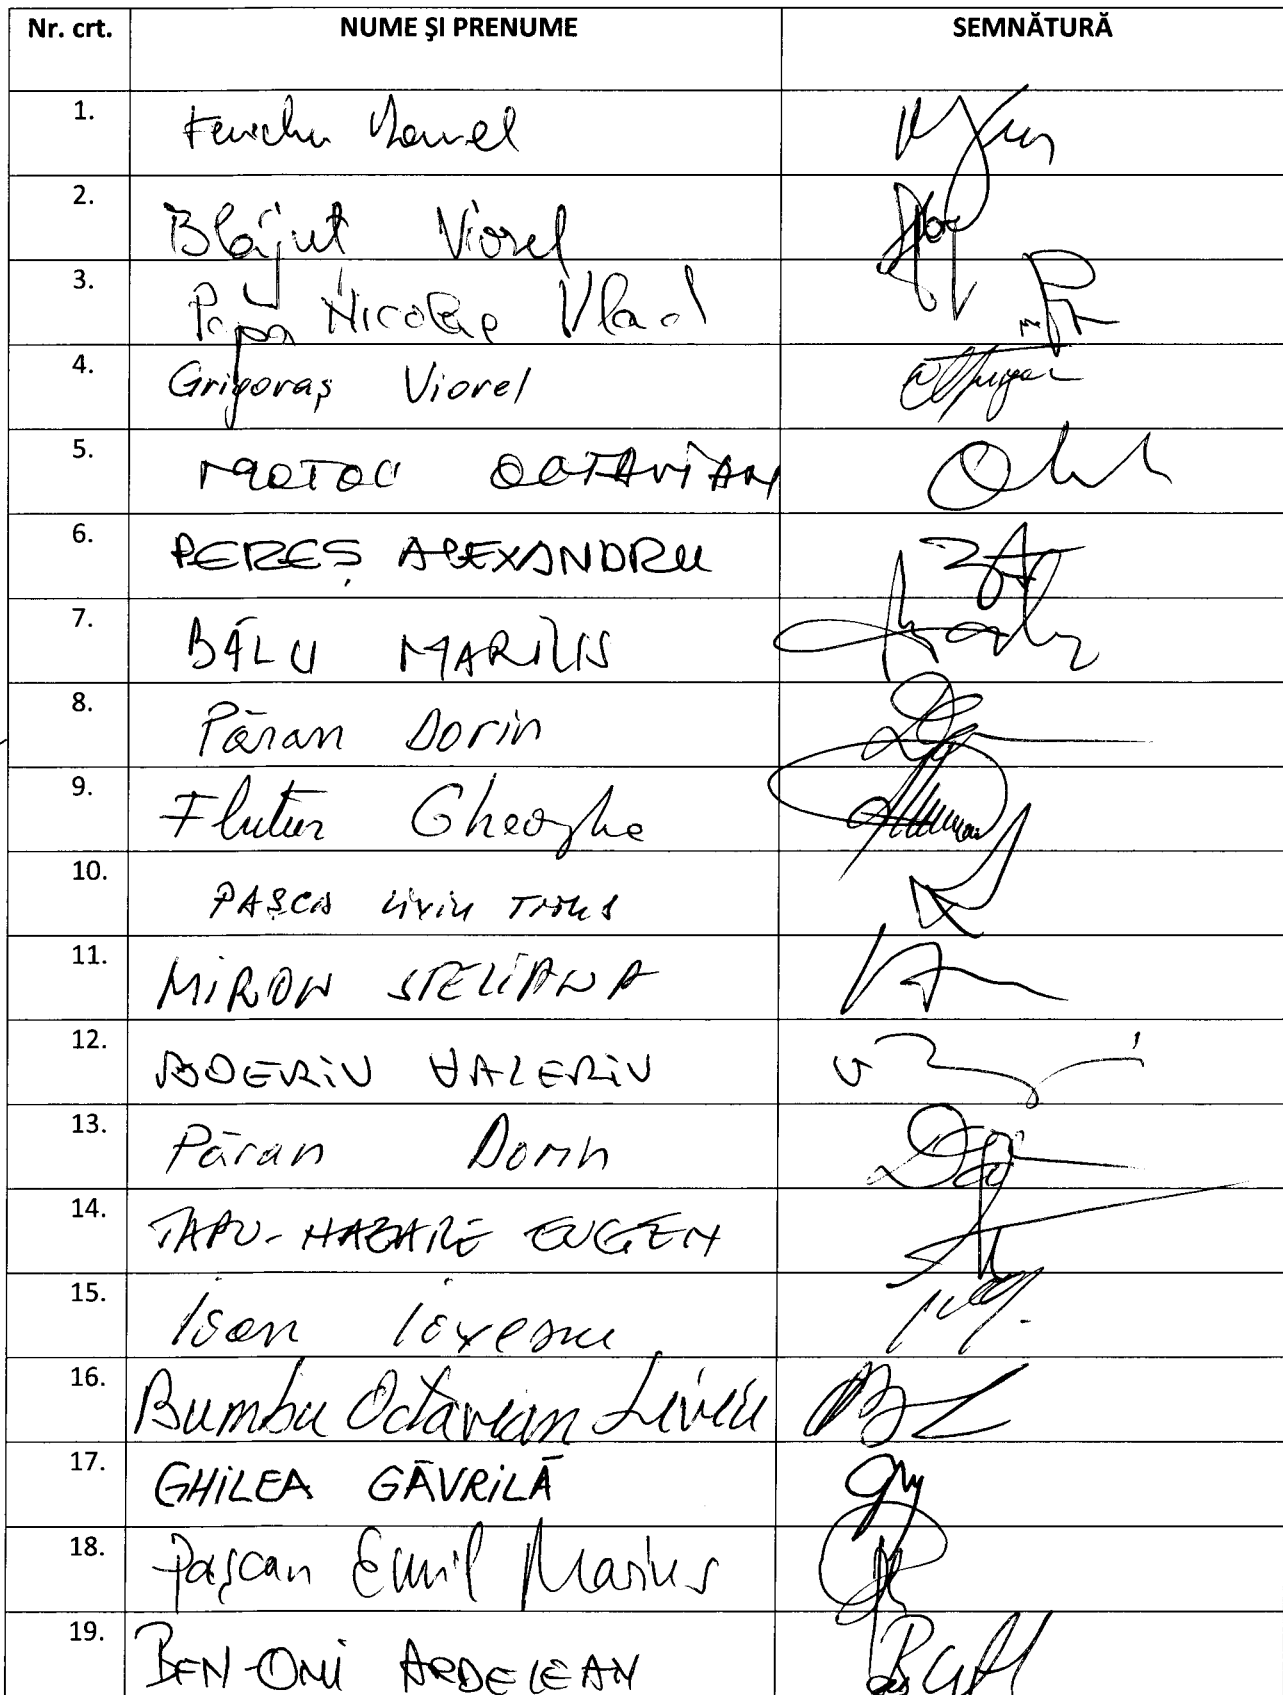 Nr. crt. NUME ŞI PRENUME SEMNĂTURĂ
1. Fenechiu Daniel
2. Blăjut Viorel
3. Popa Nicolae Vlad
4. Grigoraş Viorel
5. MOTOC OCTAVIAN
6. PEREŞ ALEXANDRU
7. BĂLU MARIUS
8. Păran Dorin
9. Flutur Gheorghe
10. PAŞCA LIVIU TITUS
11. MIRON STELIANA
12. VALERIU
13. Păran Dorin
14. ŢAPU-NAZARE EUGEN
15. Ioan
16. Bumbu Octavian Liviu
17. GHILEA GĂVRILĂ
18. Paşcan Emil Marius
19. BEN-ONI ARDELEAN